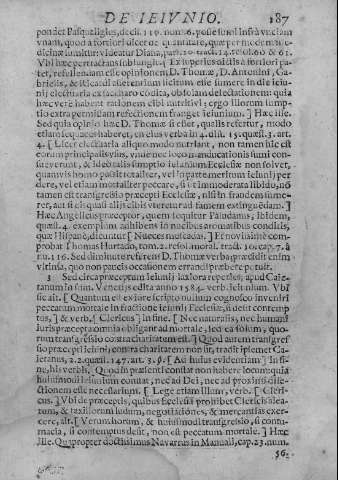 DE IEIVNIO. 187
ponått Pasqualigius, decis. 119. num. 6. posse simul infra vnciam
vnam, quod à fortiori vlcet de quantitate, quæ per modum medi-
cinæ sumitur: videatur Diana, par. 10. tract. 14. resol. 60. & 61.
Vbi hæc pertractans subiungit. [Ex superius dictis à fortiori pa-
tet, refellendam esse opinionem D. Thomæ, D. Antonini, Ga-
brielis, & aliorum asserentium licitum esse sumere in die ieiu-
nij electuaria ex saccharo condita, ob solam delectationem: quia
hæc verè habent rationem cibi nutritiui: ergo illorum sump-
tio extra permissam refectionem frangit ieiunium.] Hæc ille.
Sed quia opinio hæc D. Thomæ si esset, qualis refertur, modo
etiam sequaces haberet, en eius verba in 4. dist. 15. quæst. 3. art.
4. [Licet electuaria aliquo modo nutriant, non tamen hic est
eorum principalis vsus, vnde nec loco manducationis sumi con-
sueuerunt, & ideo talis sumptio ieiunium Ecclesiæ non soluit,
quamvis homo possit totaliter, vel in parte meritum ieiunij per-
dere, vel etiam mortaliter peccare, si sit immoderata libido, nõ
tamen est transgressio præcepti Ecclesiæ, nisi in fraudem sume-
ret, aut si eis quasi alijs cibis vteretur ad famem extinguẽdam.]
Hæc Angelicus præceptor, quem sequitur Paludanus, ibidem,
quæst. 4. exemplum adhibens in nucibus aromaticis conditis,
quæ Hispanè, dicuntur [Nueces moscadas.] Et nouissimè com-
probat Thomas Hurtado, tom. 2. resol. moral. tract. 10. cap. 7. à
nu. 116. Sed diminutè referens D. Thomæ verba præ edidit enim
vltima, quo non paucis occasionem errandi præbere potuit.
3 Sed circa præceptum ieiunij laxiora reperies, apud Caie-
tanum in sum. Venetijs edita anno 1584. verb. Ieiunium. Vbi
sic ait. [Quantum est ex iure scripto nullum cognosco inueniri
peccatum mortale in fractione ieiunij Ecclesiæ, nisi detur contemp-
tus, ] & verb. [Clericus] in fine. [Nec naturalis, nec humani
Iuris præcepta omnia obligant ad mortale, sed ea solum, quo-
rum transgressio contra charitatem est.] Quod autem transgres-
sio præcepti ieiunij, contra charitatem non sit, tradit ipsemet Ca-
ietanus, 2. 2. quæst. 147. art. 3. §. [Ad huius euidentiam] In fi-
ne, his verbis. [Quod in præsenti constat non habere locum: quia
huiusmodi ieiunium contrat, nec ad Dei, nec ad proximi dile-
ctionem esse necessarium. [Lege etiam illum, verb. [Cleri-
cus.] Vbi de præceptis, quibus Ecclesia prohibet Clericis alea-
tum, & taxillorum ludum, negotiationes, & mercantias exer-
cere, ait. [Verum horum, & huiusmodi transgressio, si contu-
macia, si contemptus desit, non est peccatum mortale.] Hæc
ille. Quapropter doctissimus Nauarrus in Manuali, cap. 23. num.
56.